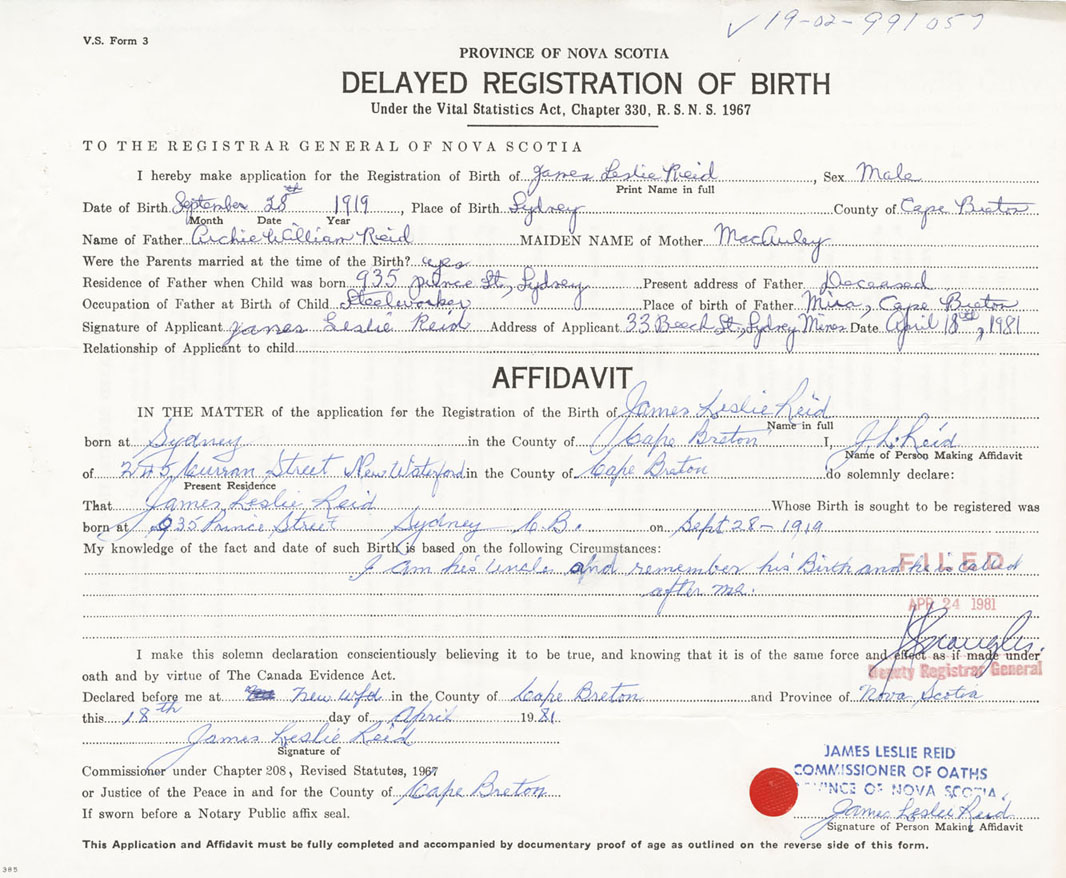 ✓ 19-02-991057
V.S. Form 3
PROVINCE OF NOVA SCOTIA
DELAYED REGISTRATION OF BIRTH
Under the Vital Statistics Act, Chapter 330, R.S.N.S. 1967
TO THE REGISTRAR GENERAL OF NOVA SCOTIA
I hereby make application for the Registration of Birth of James Leslie Reid, Sex Male
Print Name in full
Date of Birth September 28th 1919, Place of Birth Sydney County of Cape Breton
Month Date Year
Name of Father Archie William Reid MAIDEN NAME of Mother MacAuley
Were the Parents married at the time of the Birth? yes
Residence of Father when Child was born 935 prince St., Sydney Present address of Father Deceased
Occupation of Father at Birth of Child Steelworker Place of birth of Father Mira, Cape Breton
Signature of Applicant James Leslie Reid Address of Applicant 33 Beech St., Sydney Mines Date April 18th, 1981
Relationship of Applicant to child
AFFIDAVIT
IN THE MATTER of the application for the Registration of the Birth of James Leslie Reid
Name in full
born at Sydney in the County of Cape Breton I, J. L. Reid
Name of Person Making Affidavit
of Curran Street New Waterford in the County of Cape Breton do solemnly declare:
Present Residence
That James Leslie Reid Whose Birth is sought to be registered was
born at 935 Prince Street Sydney C.B. on Sept 28-1919
My knowledge of the fact and date of such Birth is based on the following Circumstances:
I am his Uncle and remember his Birth and he is called
after me.
FILED
APR 24 1981
I make this solemn declaration conscientiously believing it to be true, and knowing that it is of the same force and effect as if made under
Deputy Registrar General
oath and by virtue of The Canada Evidence Act.
Declared before me at New Wfd in the County of Cape Breton and Province of Nova Scotia
this 18th day of April 1981.
James Leslie Reid
Signature of
Commissioner under Chapter 208, Revised Statutes, 1967
or Justice of the Peace in and for the County of Cape Breton
If sworn before a Notary Public affix seal.
JAMES LESLIE REID
COMMISSIONER OF OATHS
PROVINCE OF NOVA SCOTIA
James Leslie Reid
Signature of Person Making Affidavit
This Application and Affidavit must be fully completed and accompanied by documentary proof of age as outlined on the reverse side of this form.
385